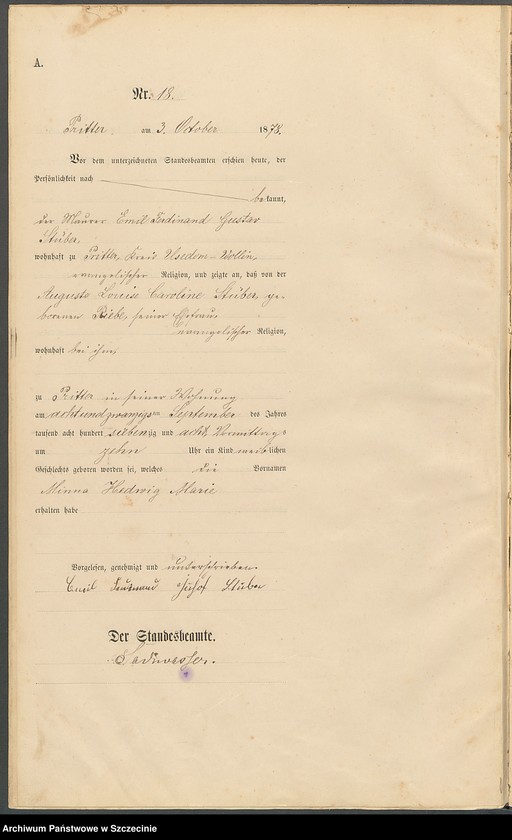 A.
Nr. 18.
Pritter, am 3. October 1878.
Vor dem unterzeichneten Standesbeamten erschien heute, der
Persönlichkeit nach
bekannt,
der Maurer Emil Ferdinand Gustav
Stüber,
wohnhaft zu Pritter, Kreis Usedom-Wollin,
evangelischer Religion, und zeigte an, daß von der
Auguste Louise Caroline Stüber, ge-
borenen Riebe, seiner Ehefrau,
evangelischer Religion,
wohnhaft bei ihm,
zu Pritter in seiner Wohnung
am achtundzwanzigs= September des Jahres
tausend acht hundert siebenzig und acht, Vormittags
um zehn Uhr ein Kind weiblichen
Geschlechts geboren worden sei, welches die Vornamen
Minna Hedwig Marie
erhalten habe
Vorgelesen, genehmigt und unterschrieben.
Emil Stüber
Der Standesbeamte.
Archiwum Państwowe w Szczecinie